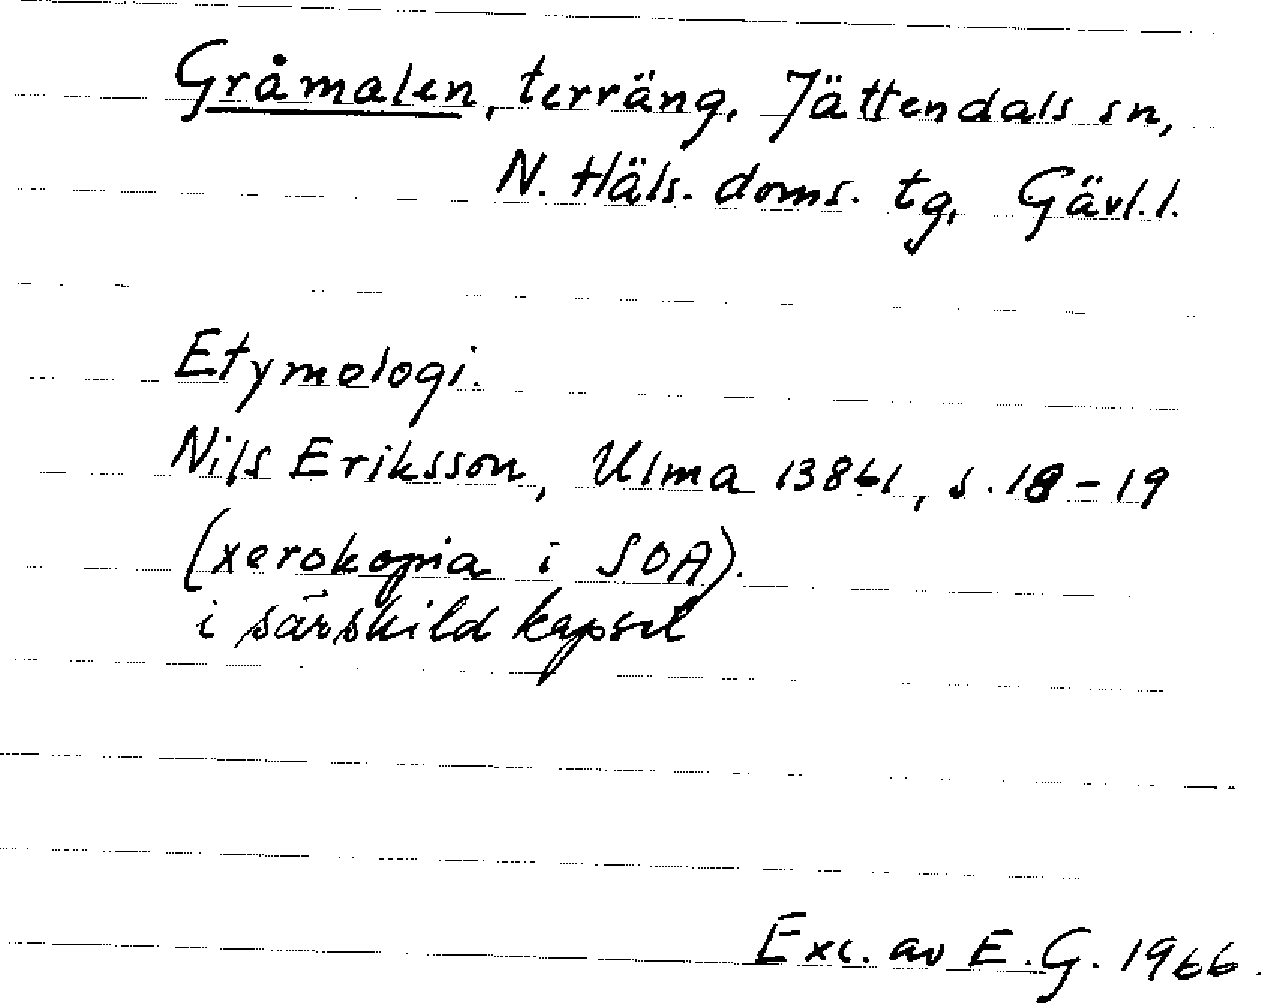 Gråmalen, terräng, Jättendals sn,
N. Häls. doms. tg, Gävl.l.
Etymologi.
Nils Eriksson, Ulma 13861, s. 18-19
(xerokopia i SOA).
i särskild kapsel
Exc. av E.G. 1966.